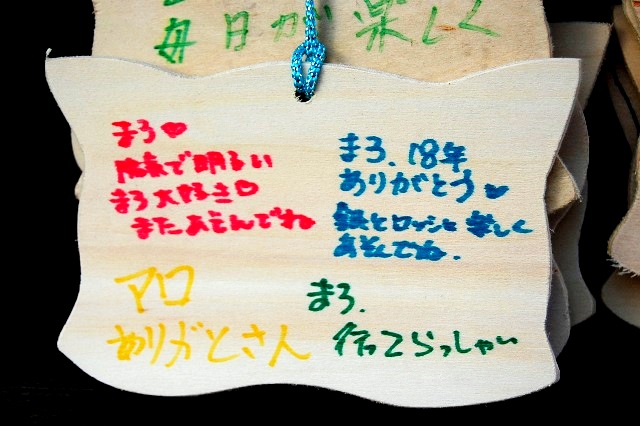 毎日が楽しく
まろ♥
陽気で明るい
まろ大好き♡
またあそんでね
まろ、18年
ありがとう♥
鉄とロッシと楽しく
あそんでね.
マロ
ありガとさん
まろ.
行ってらっしゃい